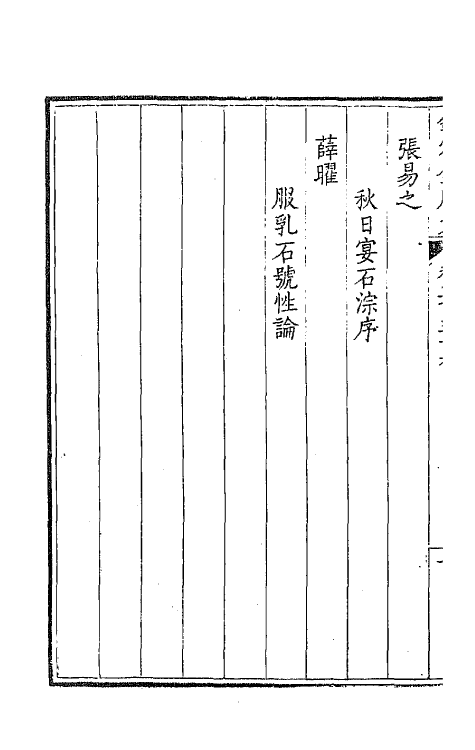 張易之
秋日宴石淙序
薛曜
服乳石號性論